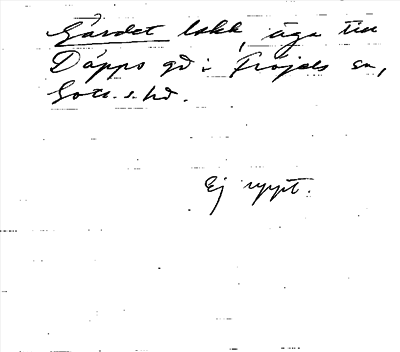 Gardet lokk, äga till
Däpps gd i Fröjels sn,
Gotl. s. hd.
Ej uppt.